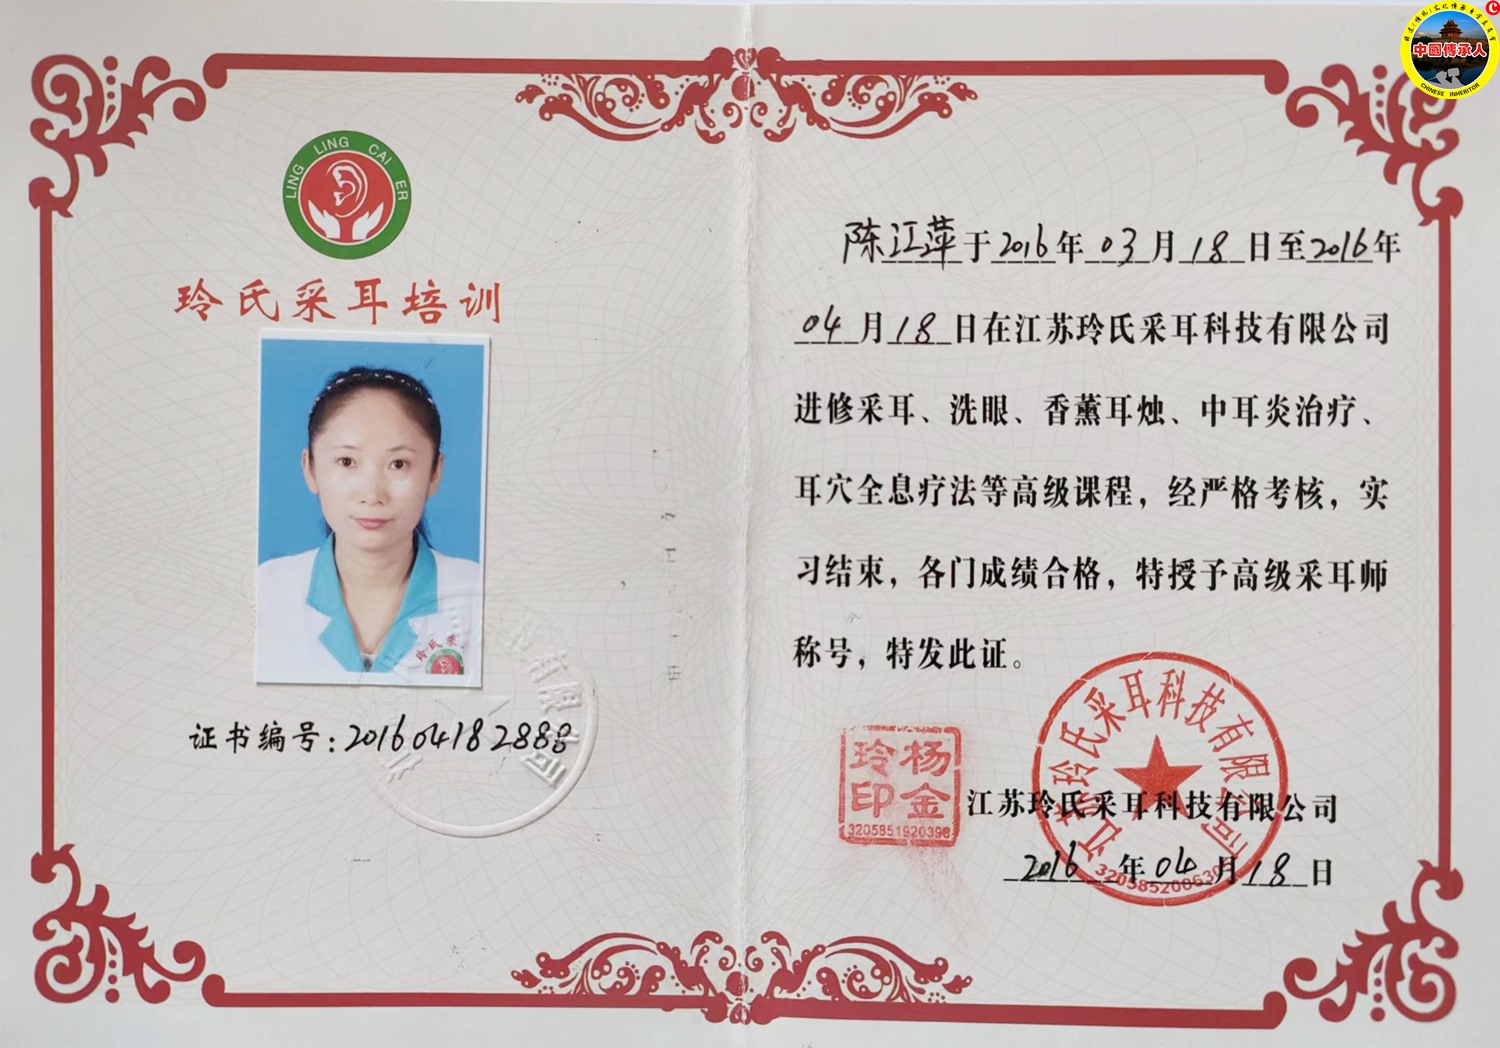 中國傳承人
CHINESE INHERITOR
LING LING CAI ER
玲氏采耳培训
证书编号:201604182888
陈江萍于2016年03月18日至2016年
04月18日在江苏玲氏采耳科技有限公司
进修采耳、洗眼、香薰耳烛、中耳炎治疗、
耳穴全息疗法等高级课程，经严格考核，实
习结束，各门成绩合格，特授予高级采耳师
称号，特发此证。
杨金玲印
3205851920398
江苏玲氏采耳科技有限公司
江苏玲氏采耳科技有限公司
2016年04月18日